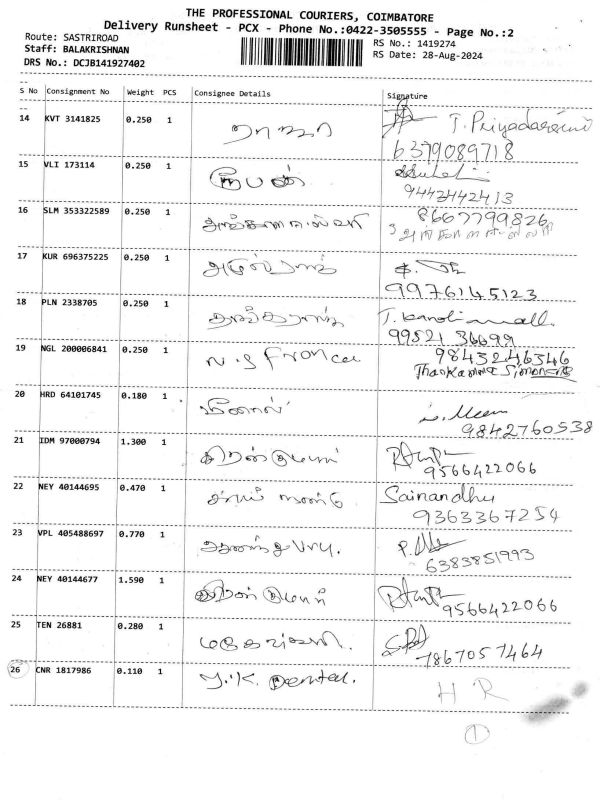 THE PROFESSIONAL COURIERS, COIMBATORE
Delivery Runsheet - PCX - Phone No.:0422-3505555 - Page No.:2
Route: SASTRIROAD
Staff: BALAKRISHNAN
DRS No.: DCJB141927402
RS No.: 1419274
RS Date: 28-Aug-2024
S No Consignment No Weight PCS Consignee Details Signature
14 KVT 3141825 0.250 1 ராஜா T. Priyadarsini
6379089718
15 VLI 173114 0.250 1
9442442413
16 SLM 353322589 0.250 1 8667799826
17 KUR 696375225 0.250 1
9976145123
18 PLN 2338705 0.250 1
99521 36699
19 NGL 200006841 0.250 1 9843246346
20 HRD 64101745 0.180 1
9842760538
21 IDM 97000794 1.300 1 கிரண்குமார்
9566422066
22 NEY 40144695 0.470 1 Sainandhu
9363367254
23 VPL 405488697 0.770 1
6383851993
24 NEY 40144677 1.590 1 கிரண்குமார்
9566422066
25 TEN 26881 0.280 1 மகேஸ்வரி.
7867057464
26 CNR 1817986 0.110 1 Dental. H R
1